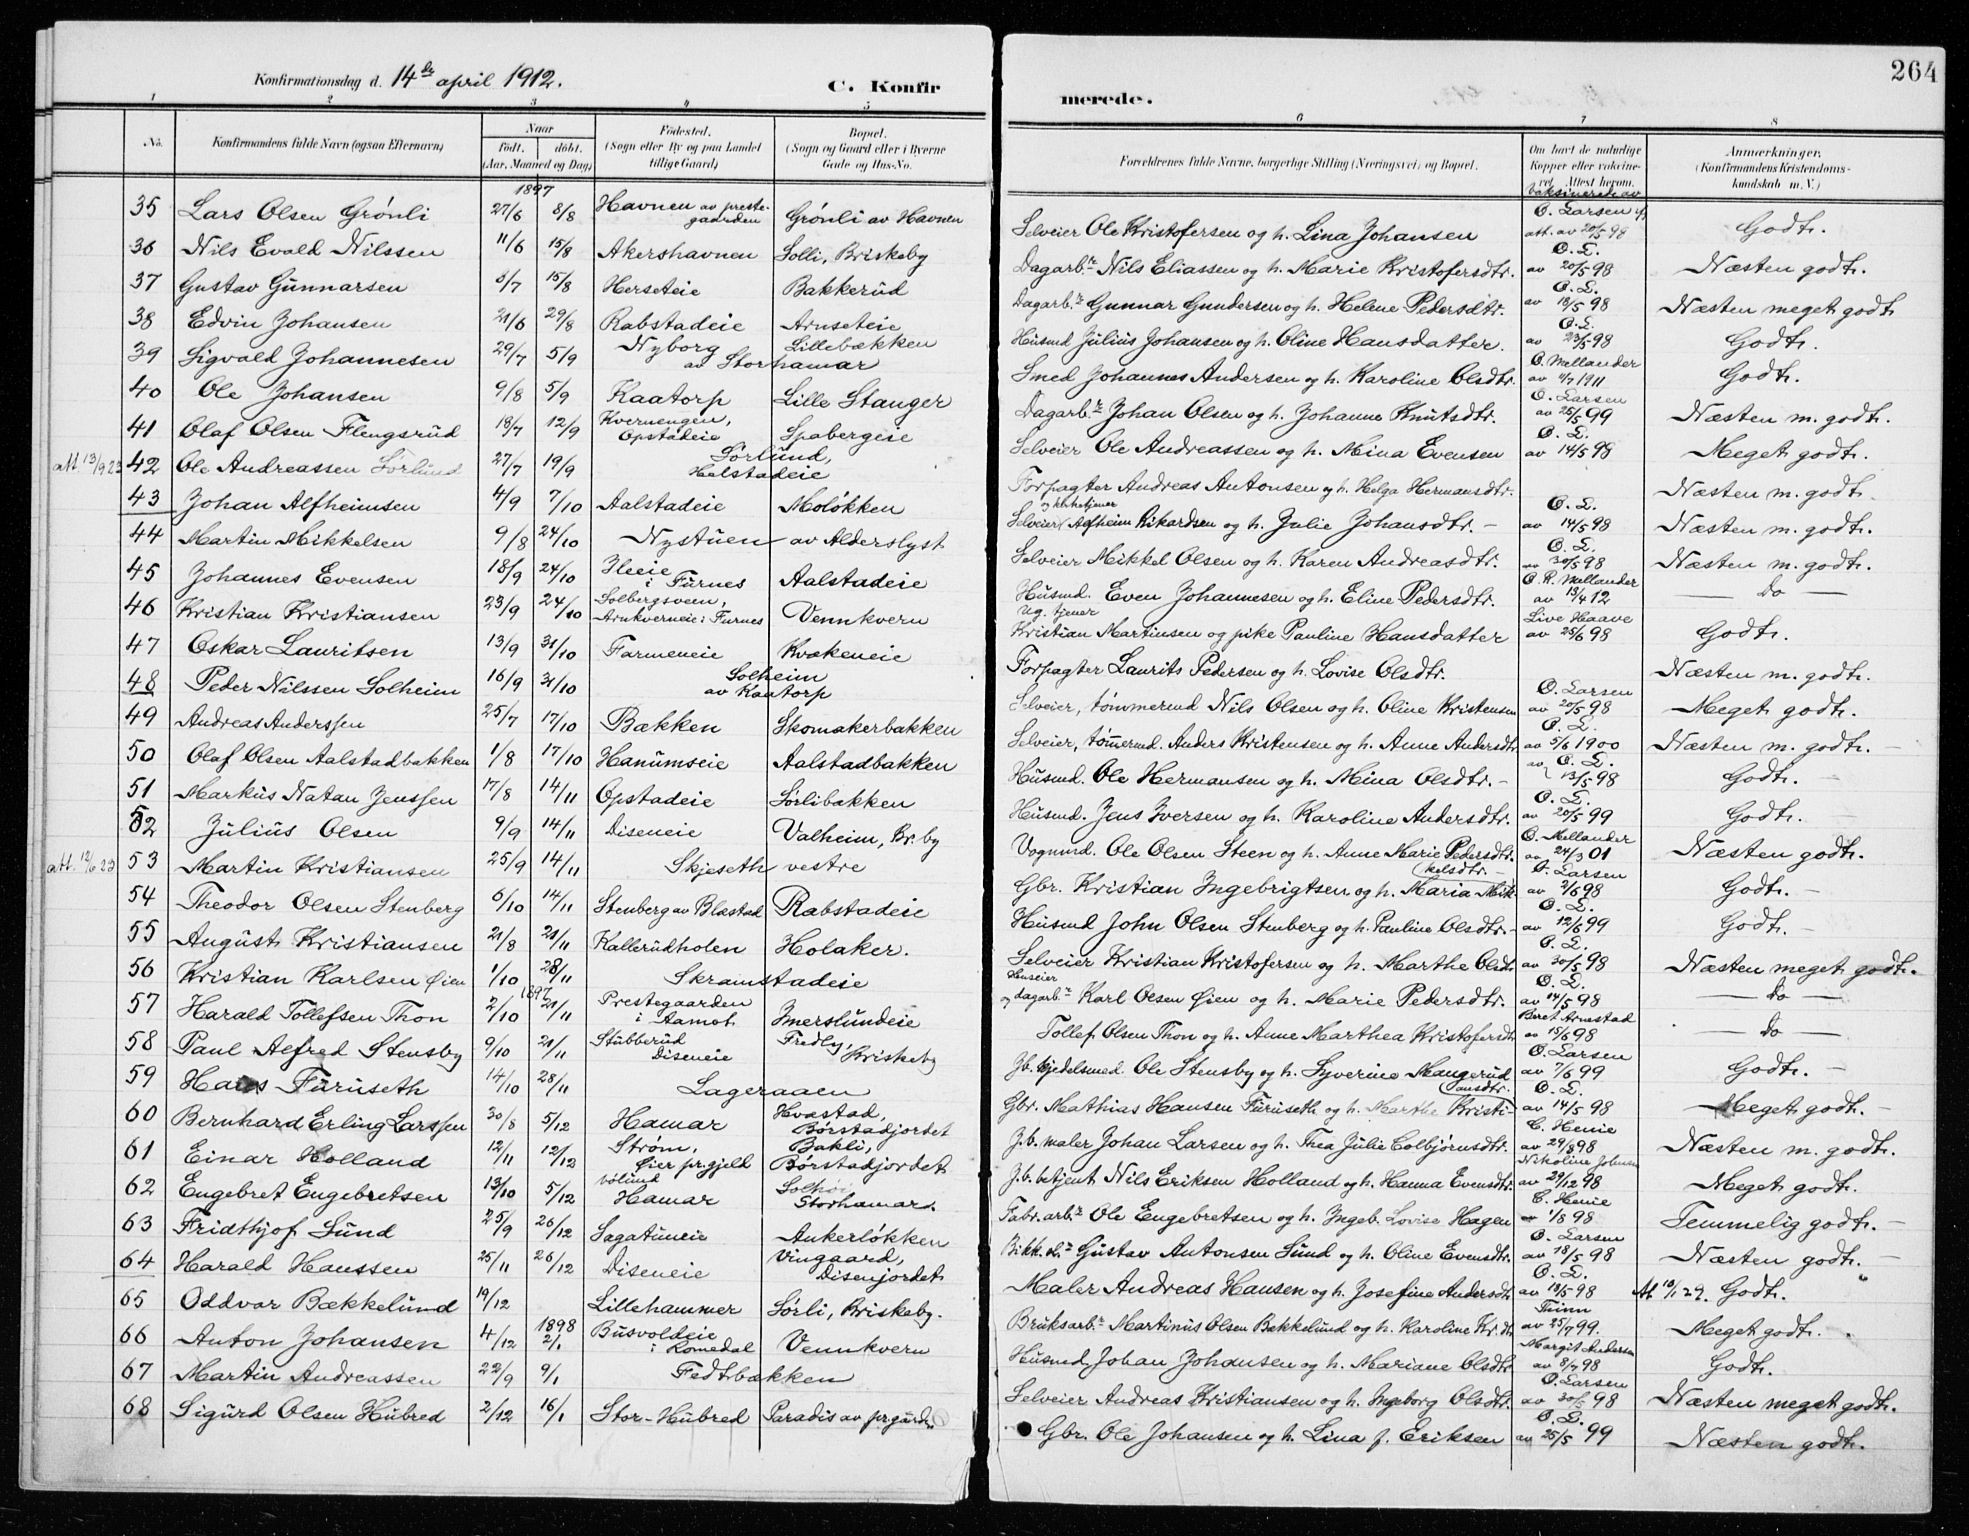 264
Konfirmationsdag d. 14de april 1912.
C. Konfir
merede.
1 2 3 4 5 6 7 8
No. Konfirmandens fulde Navn (ogsaa Efternavn) Naar født. døbt. (Aar, Maaned og Dag) Fødested. (Sogn eller By og paa Landet tillige Gaard) Bopæl. (Sogn og Gaard eller i Byerne Gade og Hus-No. Forældrenes fulde Navne, borgerlige Stilling (Næringsvei) og Bopæl. Om havt de naturlige Kopper eller vakcineret. Attest herom. Anmærkninger. (Konfirmandens Kristendomskundskab m. V.)
1897 Vaksinerede av
35 Lars Olsen Grónli 27/6 8/8 Havnen av prestegaarden Grónli av Havnen Selveier Ole Kristofersen og h. Lina Johansen O. Larsen att. av 20/5 98 Godt.
36 Nils Evald Nilssen 11/6 15/8 Akershavnen Solli, Briskeby Dagarbr. Nils Eliassen og h. Marie Kristofersdtr. O. L. av 20/5 98 Næsten godt.
37 Gustav Gunnarsen 8/7 15/8 Herseteie Bakkerud Dagarb.r Gunnar Gundersen og h. Helene Pedersdtr. O. L. av 18/5 98 Næsten meget godt
38 Edvin Johansen 21/6 29/8 Rabstadeie Arneseteie Husmd Julius Johansen og h. Oline Hansdatter. O. L. av 23/5 98 Godt.
39 Sigvald Johannesen 29/7 5/9 Nyborg Lillebækken av Storhamar Smed Johannes Andersen og h. Karoline Olsdtr. O. Mellander av 4/7 1911 Godt.
40 Ole Johansen 9/8 5/9 Kaatorp Lille Stanger Dagarb.r Johan Olsen og h. Johanne Knutsdtr. O. Larsen av 25/5 99 Næsten m. godt.
41 Olaf Olsen Flengsrud 18/7 12/9 Kvernengen, Opstadeie Spabergeie Selveier Ole Andreassen og h. Mina Evensen O. L. av 14/5 98 Meget godt.
att. 13/9 23 42 Ole Andreassen Sørlund 27/7 19/9 Sørlund, Helstadeie Forpagter Andreas Antonsen og h. Helga Hermansdtr. Næsten m. godt.
43 Johan Alfheimsen 4/9 7/10 Aalstadeie Moløkken Selveier og kirketjener Alfheim Rikardsen og h. Julie Johansdtr. O. L. av 14/5 98 Næsten m. godt.
44 Martin Mikkelsen 9/8 24/10 Nystuen av Alderslyst Selveier Mikkel Olsen og h. Karen Andreasdtr. O. L. av 30/5 98 Næsten m. godt.
45 Johannes Evensen 18/9 24/10 Ileeie i Furnes Aalstadeie Husmd. Even Johannesen og h. Eline Pedersdtr. O. R. Mellander av 13/4 12 Do
46 Kristian Kristiansen 23/9 24/10 Solbergsveen, Arnkverneie i Furnes Vennkvern Ug. tjener Kristian Martinsen og pike Pauline Hansdatter Live Haave av 25/6 98 Godt.
47 Oskar Lauritsen 13/9 31/10 Farmeneie Kvækeneie Forpagter Laurits Pedersen og h. Lovise Olsdtr. Næsten m. godt.
48 Peder Nilssen Solheim 16/9 31/10 Solheim av Kaatorp Selveier, tømmermd Nils Olsen og h. Oline Kristensen O. Larsen av 20/5 98 Meget godt.
49 Andreas Anderssen 25/7 17/10 Bækken Skomakerbakken Selveier, tømmermd. Anders Kristensen og h. Anne Andersdtr O. L. av 5/6 1900 Næsten m. godt.
50 Olaf Olsen Aalstadbakken 1/8 17/10 Hanumseie Aalstadbakken Husmd. Ole Hermansen og h. Mina Olsdtr. av O. L. 13/5 98 Godt.
51 Markus Natan Jenssen 17/8 14/11 Opstadeie Sørlibakken Husmd. Jens Iversen og h. Karoline Andersdtr. O. L. av 20/5 99 Godt.
52 Julius Olsen 9/9 14/11 Diseneie Valheim, Br. by Vognmd. Ole Olsen Steen og h. Anne Marie Pedersdtr. O. Mellander av 24/3 01 Næsten godt.
att. 12/6 23 53 Martin Kristiansen 25/9 14/11 Skjeseth vestre Gbr. Kristian Ingebrigtsen og h. Maria Mikkelsdtr. O. Larsen av 2/6 98 Godt.
54 Theodor Olsen Stenberg 6/10 14/11 Stenberg av Blæstad Rabstadeie Husmd John Olsen Stenberg og h. Pauline Olsdtr. O. L. av 12/6 99 Godt.
55 August Kristiansen 21/8 21/11 Kallerudholen Holaker. Selveier Kristian Kristofersen og h. Marthe Olsdtr O. L. av 30/5 98 Næsten meget godt.
56 Kristian Karlsen Øien 1/10 28/11 Skramstadeie Huseier og dagarb.r Karl Olsen Øien og h. Marie Pedersdtr. O. L. av 14/5 98 Do
1897
57 Harald Tollefsen Thon 2/10 21/11 Prestegaarden i Aamot Imerslundeie Tollef Olsen Thon og h. Anne Marthea Kristofersdtr Beret Arnestad av 15/6 98 Do
58 Paul Alfred Stensby 9/10 21/11 Stubberud Diseneie Fredly, Briskeby Jb. kjedelsmed. Ole Stensby og h. Syverine Mangerud O. Larsen av 7/6 99 Godt.
59 Hans Furuseth 14/10 28/11 Lageraaen Gbr. Mathias Hansen Furuseth og h. Marthe Kristiansdtr. O. L. av 14/5 98 Meget godt.
60 Bernhard Erling Larssen 30/8 5/12 Hamar Hvastad, Børstadjordet J.b. maler Johan Larsen og h. Thea Julie Colbjørnsdtr. C. Henie av 29/8 98 Næsten m. godt.
61 Einar Holland 12/11 12/12 Strøm, Øier pr.gjeld Bakli, Børstadjordet J.b. betjent Nils Eriksen Holland og h. Hanna Evensdtr. Nikoline Johnsen av 29/12 98 Meget godt.
62 Engebret Engebretsen 13/10 5/12 Hamar Solhøi Storhamar. Fabr. arb.r Ole Engebretsen og h. Ingeb. Lovise Hagen C. Henie 1/8 98 Temmelig godt.
63 Fridthjof Sund 25/9 26/12 Sagatuneie Ankerløkken Gustav Antonsen Sund og h. Oline Evensdtr. O. Larsen av 18/5 98 Næsten godt.
64 Harald Hanssen 25/11 26/12 Diseneie Vingaard, Disenjordet Maler Andreas Hansen og h. Josefine Andersdtr O. L. av 13/5 98 At. 10/1 29. Godt.
65 Oddvar Bækkelund 19/12 Lillehammer Sørli, Briskeby. Bruksarb.r Martinus Olsen Bækkelund og h. Karoline Kr.dtr Thinn av 25/7 99. Meget godt.
1898
66 Anton Johansen 4/12 2/1 Busvoldeie i Romedal Vennkvern Husmd. Johan Johansen og h. Mariane Olsdtr. Margit Andersen av 8/7 98 Godt.
67 Martin Andreassen 22/9 9/1 Fedtbækken Selveier Andreas Kristiansen og h. Ingeborg Olsdtr. O. Larsen av 30/5 98 Næsten meget godt.
68 Sigurd Olsen Hubred 2/12 16/1 Stor-Hubred Paradis av pr.gaarden Gbr. Ole Johansen og h. Lina f. Eriksen O. L. av 25/5 99 Næsten godt.